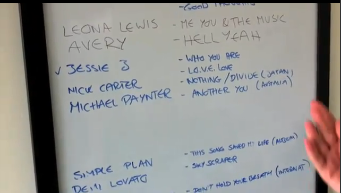 - GOOD
LEONA LEWIS - ME YOU & THE MUSIC
AVERY - HELL YEAH
✓ JESSIE J - WHO YOU ARE
- L.O.V.E. LOVE
NICK CARTER - NOTHING / DIVIDE (JAPAN)
MICHAEL PAYNTER - ANOTHER YOU (AUSTRALIA)
- THIS SONG SAVED MY LIFE
SIMPLE PLAN
- SKYSCRAPER
DEMI LOVATO
- DON'T HOLD YOUR BREATH